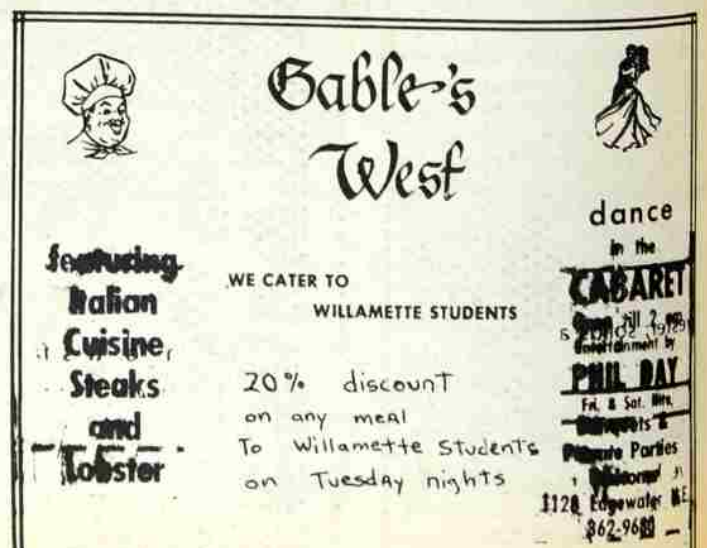 Gable's
West
featuring
Italian
Cuisine,
Steaks
and
Lobster
WE CATER TO
WILLAMETTE STUDENTS
20% discount
on any meal
To Willamette Students
on Tuesday nights
dance
in the
CABARET
till 2
Entertainment by
PHIL DAY
Fri. & Sat.
&
Private Parties
Edgewater